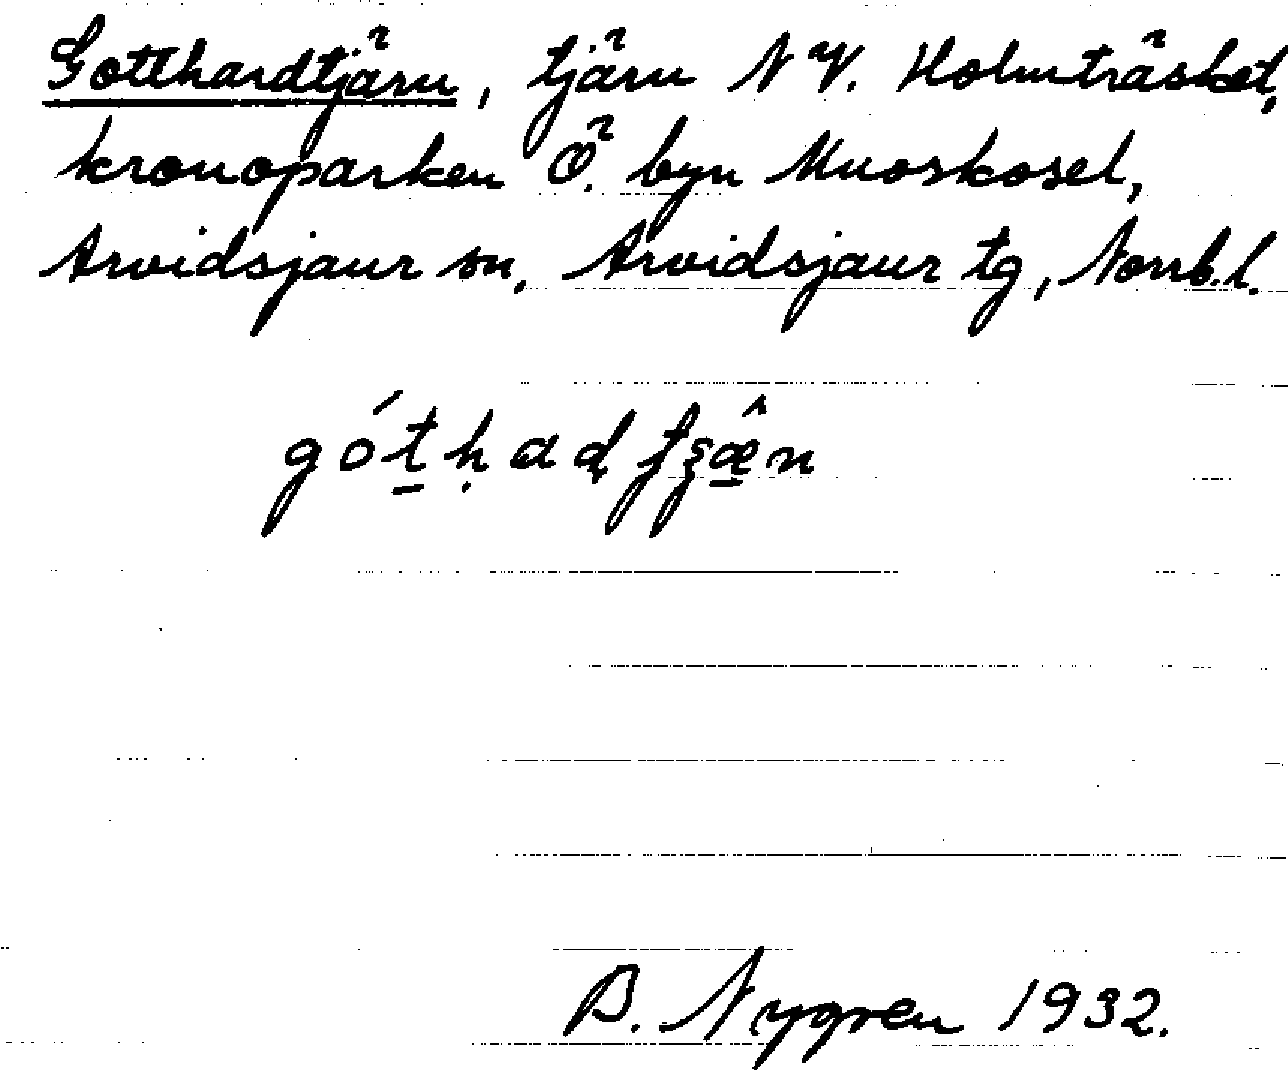 Gotthardtjärn, tjärn NV. Holmträsket,
kronoparken Ö. byn Muoskosel,
Arvidsjaur sn, Arvidsjaur tg, Norrb.l.
B. Nygren 1932.